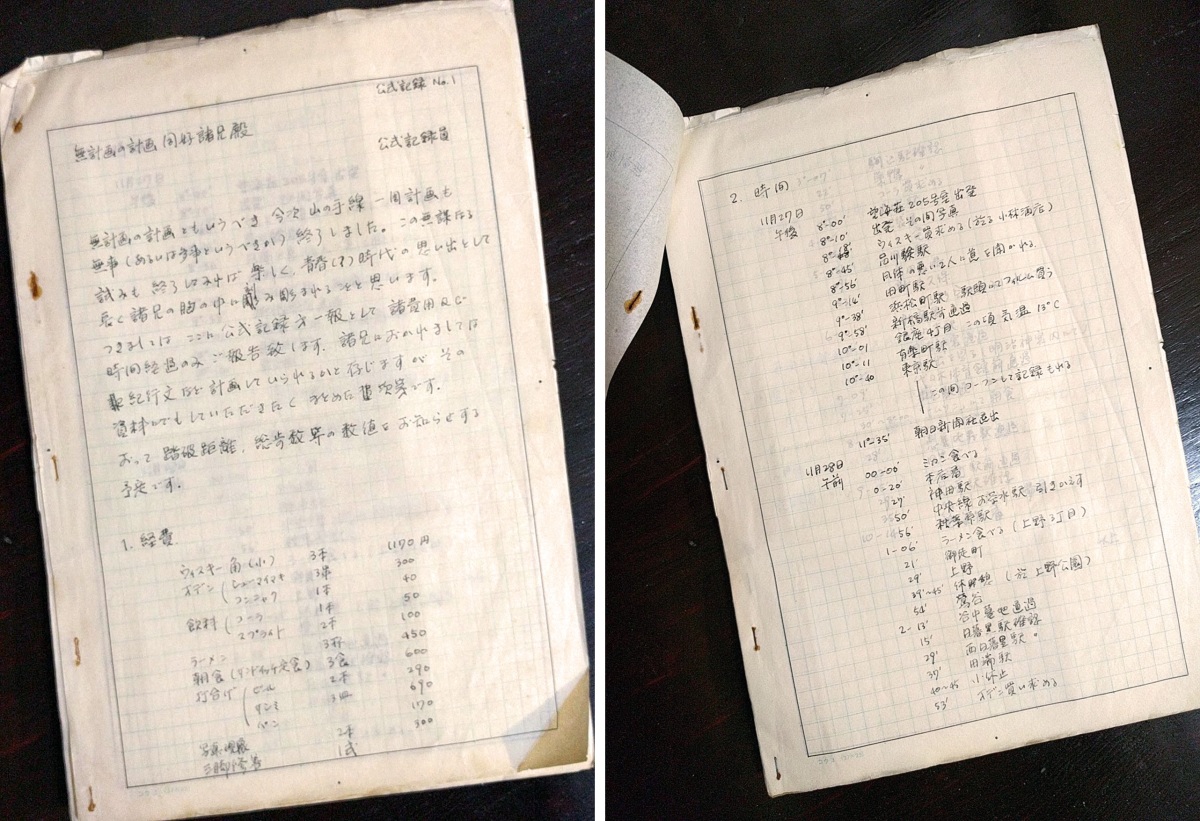 公式記録 No.1
無計画の計画 同好諸兄殿
公式記録員
無計画の計画ともいうべき 今次 山の手線 一周計画も
無事(あるいは 事というべきか) 終了しました。この無謀なる
試みも 終了してみれば 楽しく、青春(?)時代の思い出として
長く諸兄の胸の中に 刻み彫まれることと思います。
つきましては ここに 公式記録 第一報として 諸費用及び
時間経過のみ ご報告致します。諸兄におかれましては
紀行文など計画していられるかと存じますが その
資料にでもしていただきたく まとめた 次第です。
おって 踏破距離、総歩数等の数値を お知らせする
予定です。
1. 経費
ウィスキー 角(小) 3本 1170円
オデン シューマイマキ 3串 300
コンニャク 1本 40
飲料 コーラ 1本 50
スプライト 2本 100
ラーメン 3杯 450
朝食(サンドイッチ定食) 3食 600
打合げ ビール 2本 290
タンミ 3皿 690
パン 170
写真現像 2本 300
三脚修等 1式
2. 時間
11月27日 午後 8°-00' 望海荘 205号室 出発
8°-10' 出発 その間 写真
ウィスキー買求める (於る 小林酒店)
8°-45' 品川駅
8°-56' 風体の悪い2人に道を聞かれる
9°-14' 田町駅
9°-38' 浜松町駅 駅頭にてフィルム買う
9°-58' 新橋駅前通過
10°-01 銀座4丁目 この頃 気温 13°C
10°-11 有楽町駅
10°-40 東京駅
この間 コーフンして記録もれる
11°-35' 朝日新聞社退出
11月28日 午前 00-00' ミカン食べる
0-20' 本居宿
27' 神田駅
50' 中央線 お茶水駅 引きかえす
56' 秋葉原駅
1-06' ラーメン食べる (上野3丁目)
21' 御徒町
29' 上野
39'~45' 休憩 (於 上野公園)
54' 鶯谷
2-13' 谷中墓地通過
15' 日暮里駅確認
29' 西日暮里駅。
39' 田端駅
40~45' 小休止
53' オデン買い求める